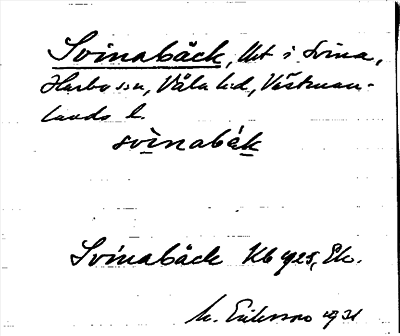 Svinabäck, ht i Svina,
Harbo sn, Våla hd, Västman-
lands l.
svinabäk
Svinabäck Kb 1925, Ek.
M. Eriksson 1931